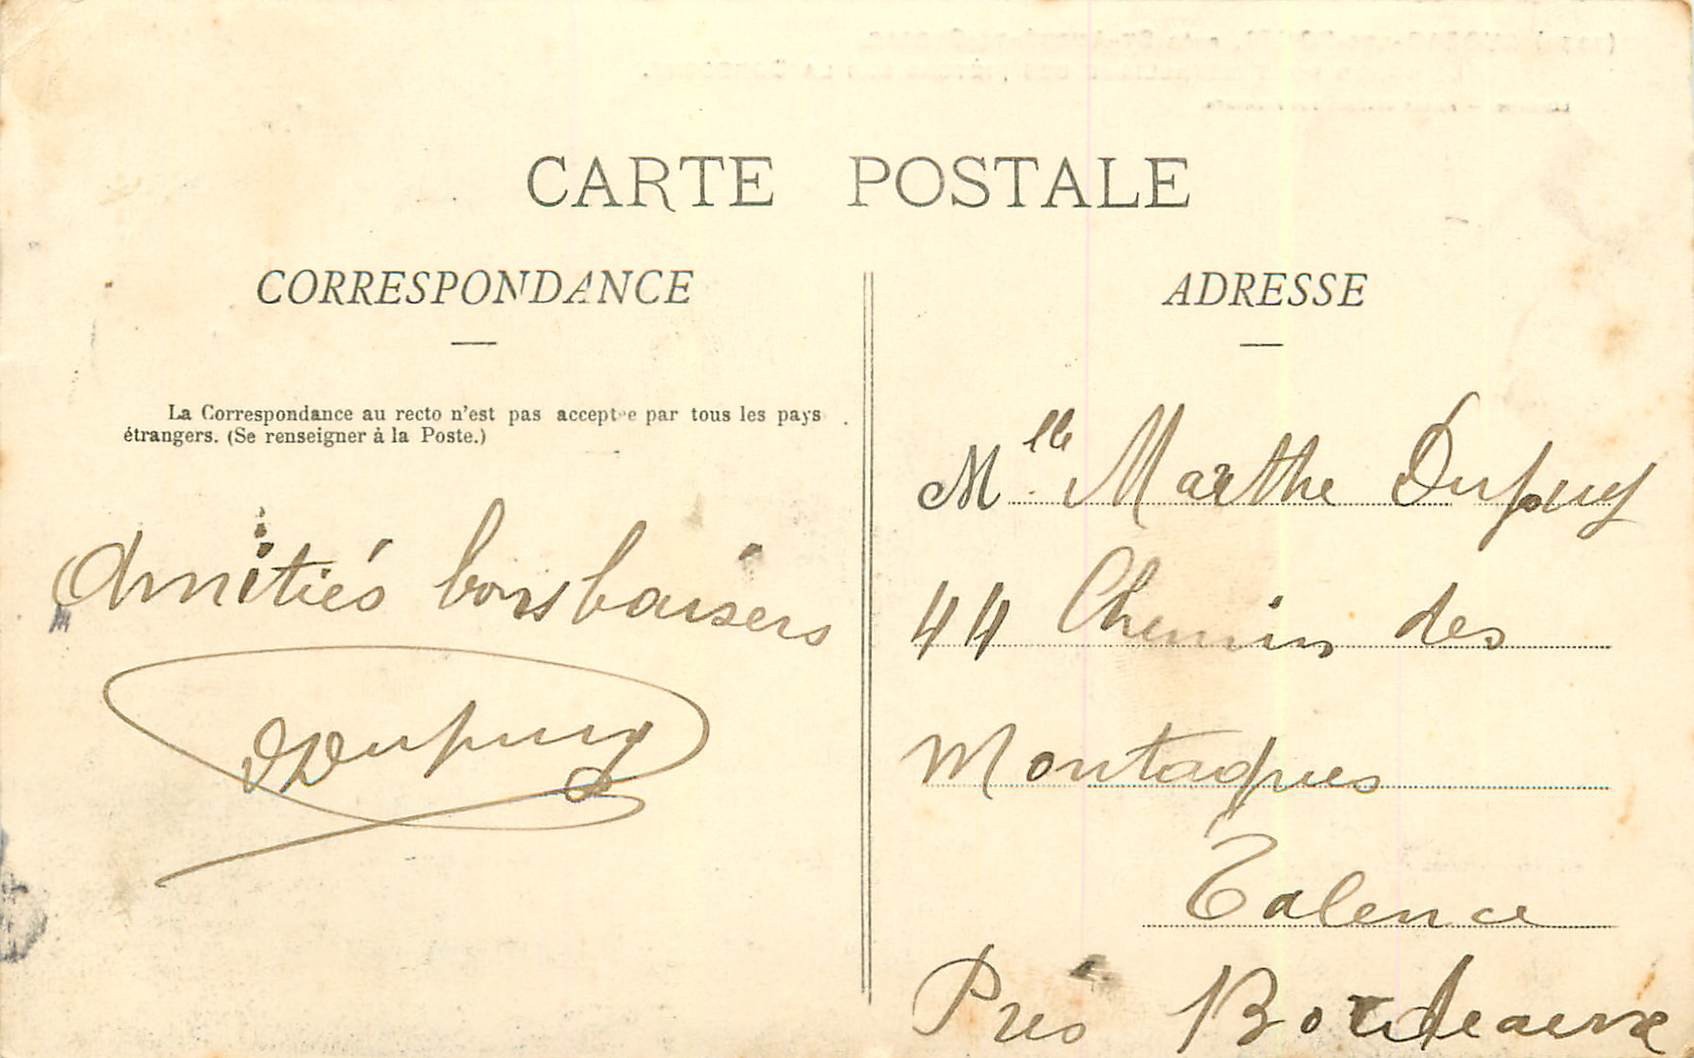 CARTE POSTALE
CORRESPONDANCE
La Correspondance au recto n'est pas acceptée par tous les pays
étrangers. (Se renseigner à la Poste.)
Amitiés bons baisers
Dupuy
ADRESSE
Mlle Marthe Dupuy
44 Chemin des
Montagnes
Talence
Près Bordeaux